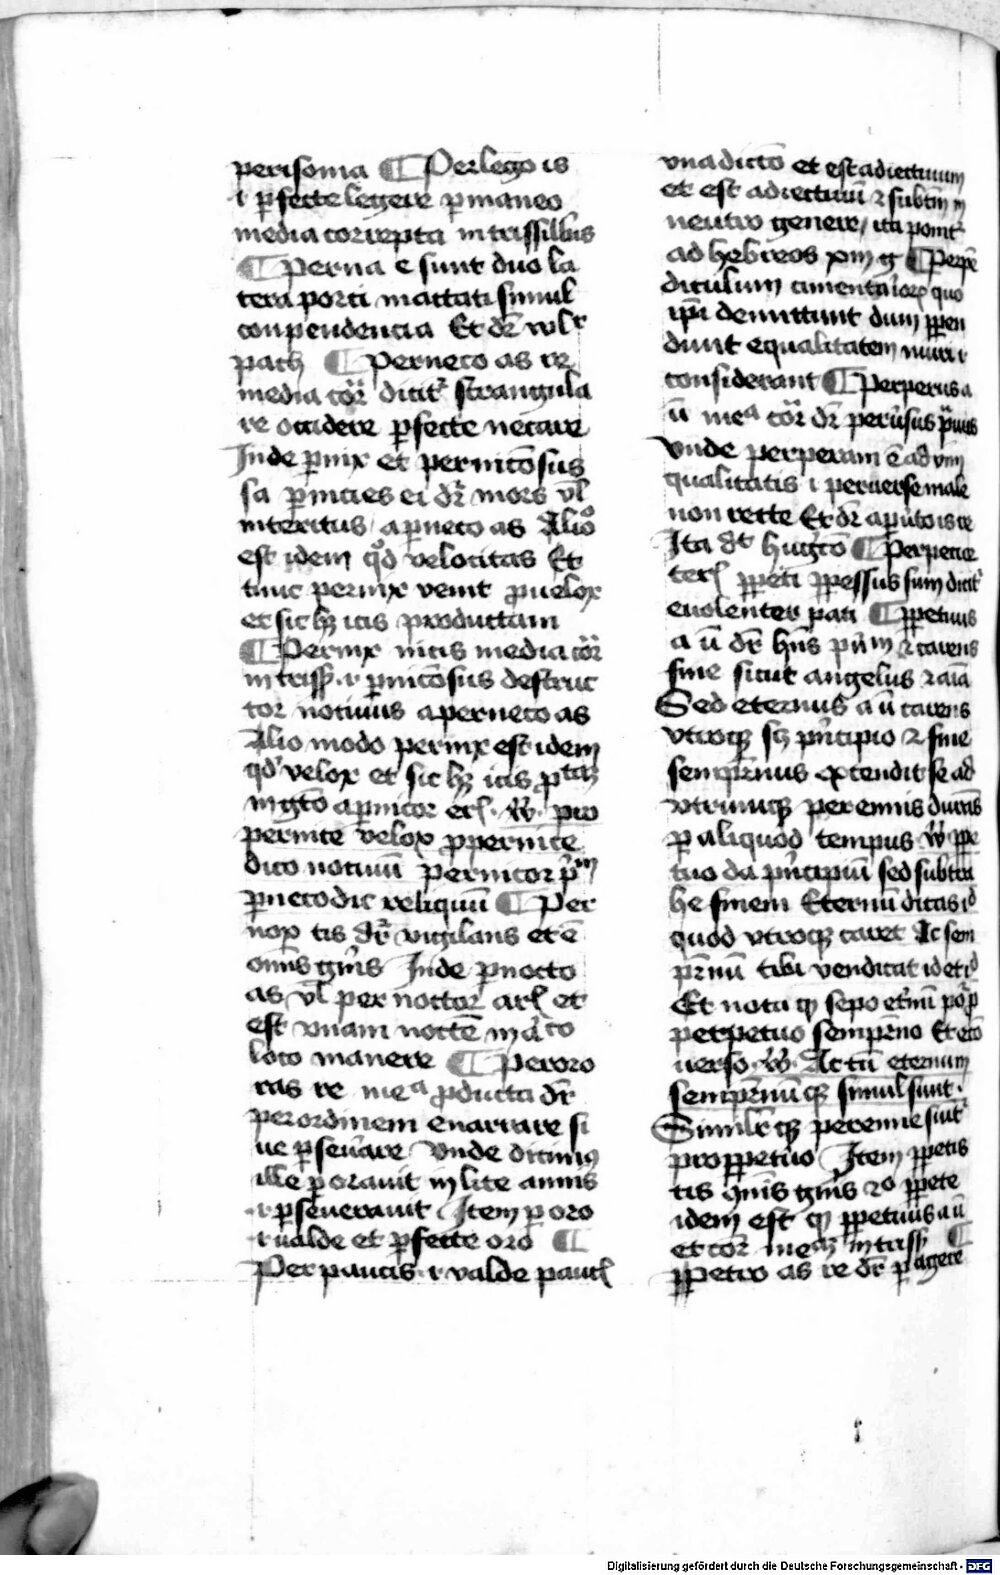 perisoma ¶ Perlego is
.i. ꝑfecte legere ꝑmaneo
media correpta in trissilbis
¶ Perna e sunt duo la
tera porci mactati simul
conpendencia Et dr̄ wlr
pach ¶ Perneco as re
media cor̄ dicitᷣ strangula
re occidere ꝑfecte necare
Inde ꝑnix et perniciosus
sa ꝑnicies ei dr̄ mors vl
interitus a ꝑneco as Alio
est idem qd̄ velocitas Et
tunc pernix venit ꝓuelox
et sic hꝫ icis productam
¶ Pernix nicis media cor̄
in trissꝭ .i. ꝑniciosus destruc
tor nociuus a perneco as
Alio modo pernix est idem
qd̄ velox et sic hꝫ icis ꝓtam
in gto a ꝑnicor
pernice velox ꝓpernice
dico nociuum pernicor pͥm
ꝑneco dic reliquum ¶ Per
nox tis dr̄ vigilans et ē
omīs gn̄is Inde ꝑnocto
as vl pernoctor arꝭ et
est vnam noctē in aͥco
loco manere ¶ Peroro
ras re meᵃ ꝓducta dr̄
per ordinem enarrare si
ue ꝑseuerare Vnde dicimus
ille ꝑorauit in lite annis
.i. ꝑseuerauit Item ꝑoro
.i. ualde et ꝑfecte oro ¶
Perpaucis .i. valde pauci
vna dicto et est adiectiuum
et est adiectiuū ⁊ subtm̄ in
neutro genere, ita ponitᷣ
ad hebreos xiij g ¶ Perpē
diculum cimentariorꝫ quo
ip̄i demittunt dum ꝑpen
dunt equalitatem muri ⁊
considerant ¶ Perperus a
ū meᵃ cor̄ dr̄ peruersus prauus
Vnde perperam ē aduerbium
qualitatis .i. peruerse male
non recte Et dr̄ a
Ita dt hugͥco ¶ Perpecior
terꝭ ꝑpeti ꝑpessus sum dicitᷣ
euolenter pati ¶ ꝑpetuus
a ū dr̄ hn̄s pͥnm ⁊ carens
fine sicut angelus ⁊ aīa
Sed eternus a ū carens
vtroqꝫ scꝫ pͥncipio ⁊ fine
sempiternus extendit se ad
vtrumqꝫ perennis durans
ꝑ aliquod tempus ꝟ ꝑpe
tuo da pͥncipium sed subtra
he finem Eternū dicas id
quod vtroqꝫ caret Ac sem
pͥnū tibi vendicat id et id
Et nota qꝫ sepe et̄nū
perpetuo sempͥno Et ecō
uerso ꝟ Ac tū eternum
sempͥnūqꝫ simul sunt.
Similrqꝫ perenne
pro ꝑpetuo Item ꝑpetis
tis om̄is gn̄is ꝑpete
idem est qꝫ ꝑpetuus a ū
et cor̄ meᵃꝫ in trissꝭ ¶
Ꝑpetro as re dr̄ ꝑagere